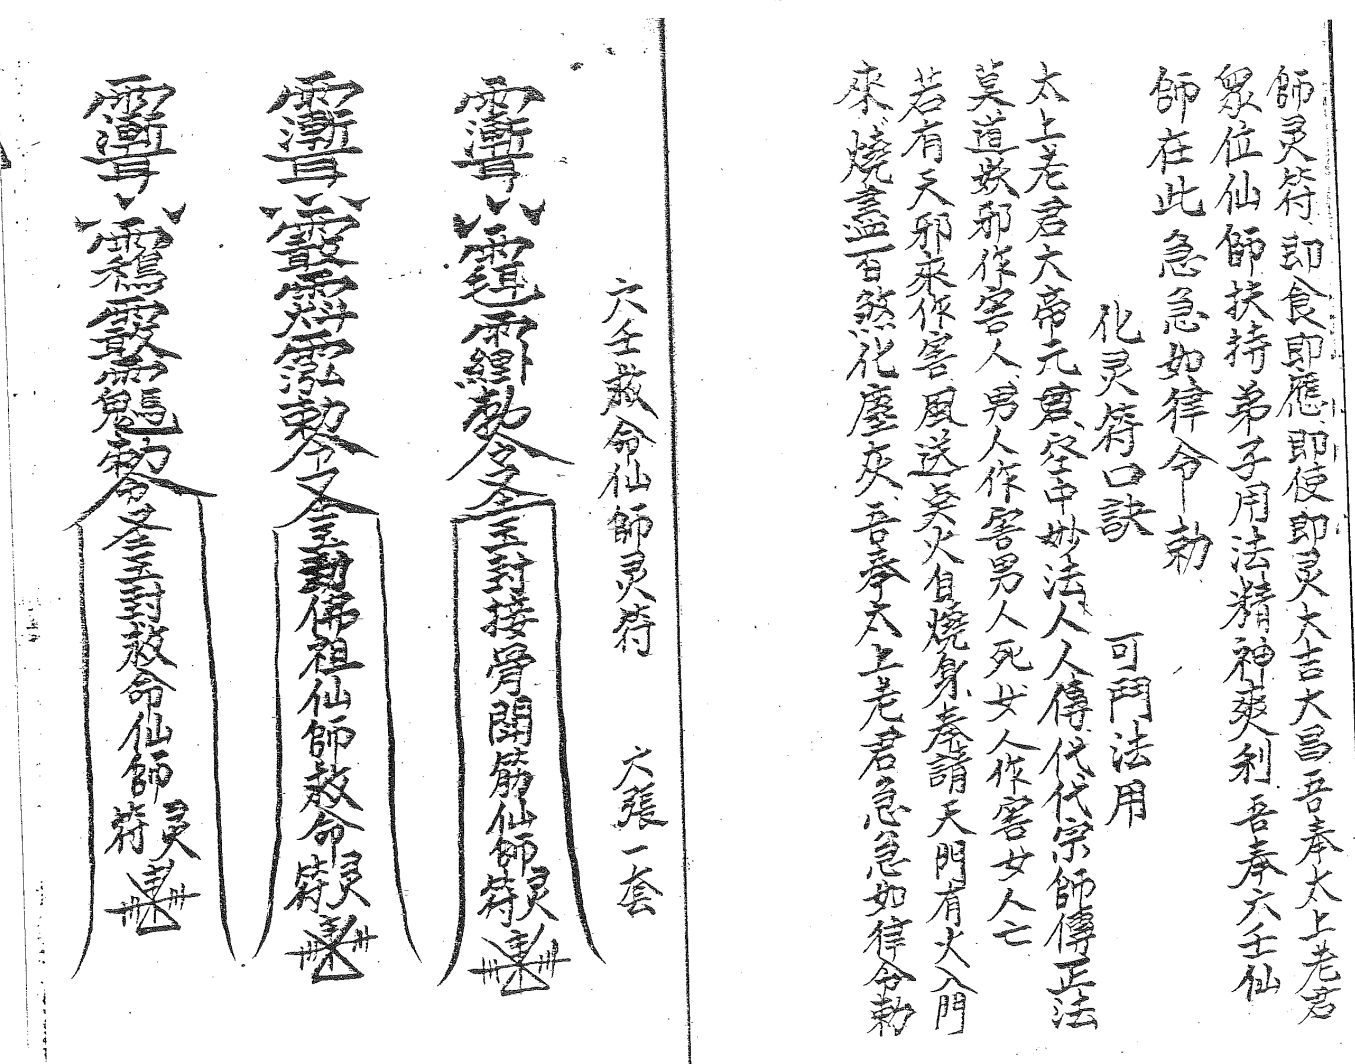 師灵符即食即應即使即灵大吉大昌吾奉太上老君
眾位仙師扶持弟子用法精神爽利吾奉六壬仙
師在此急急如律令勅
化灵符口訣 可鬥法用
太上老君大帝元君空中妙法人人傳代代宗師傳正法
莫道妖邪作害人男人作害男人死女人作害女人亡
若有天邪來作害風送炎火自燒身奉請天門有火入門
來燒盡百煞化塵灰吾奉太上老君急急如律令勅
六壬救命仙師灵符 六張一套
勅令 玉封接骨開筋仙師灵符
勅令 玉勅佛祖仙師救命灵符
勅令 玉封救命仙師灵符